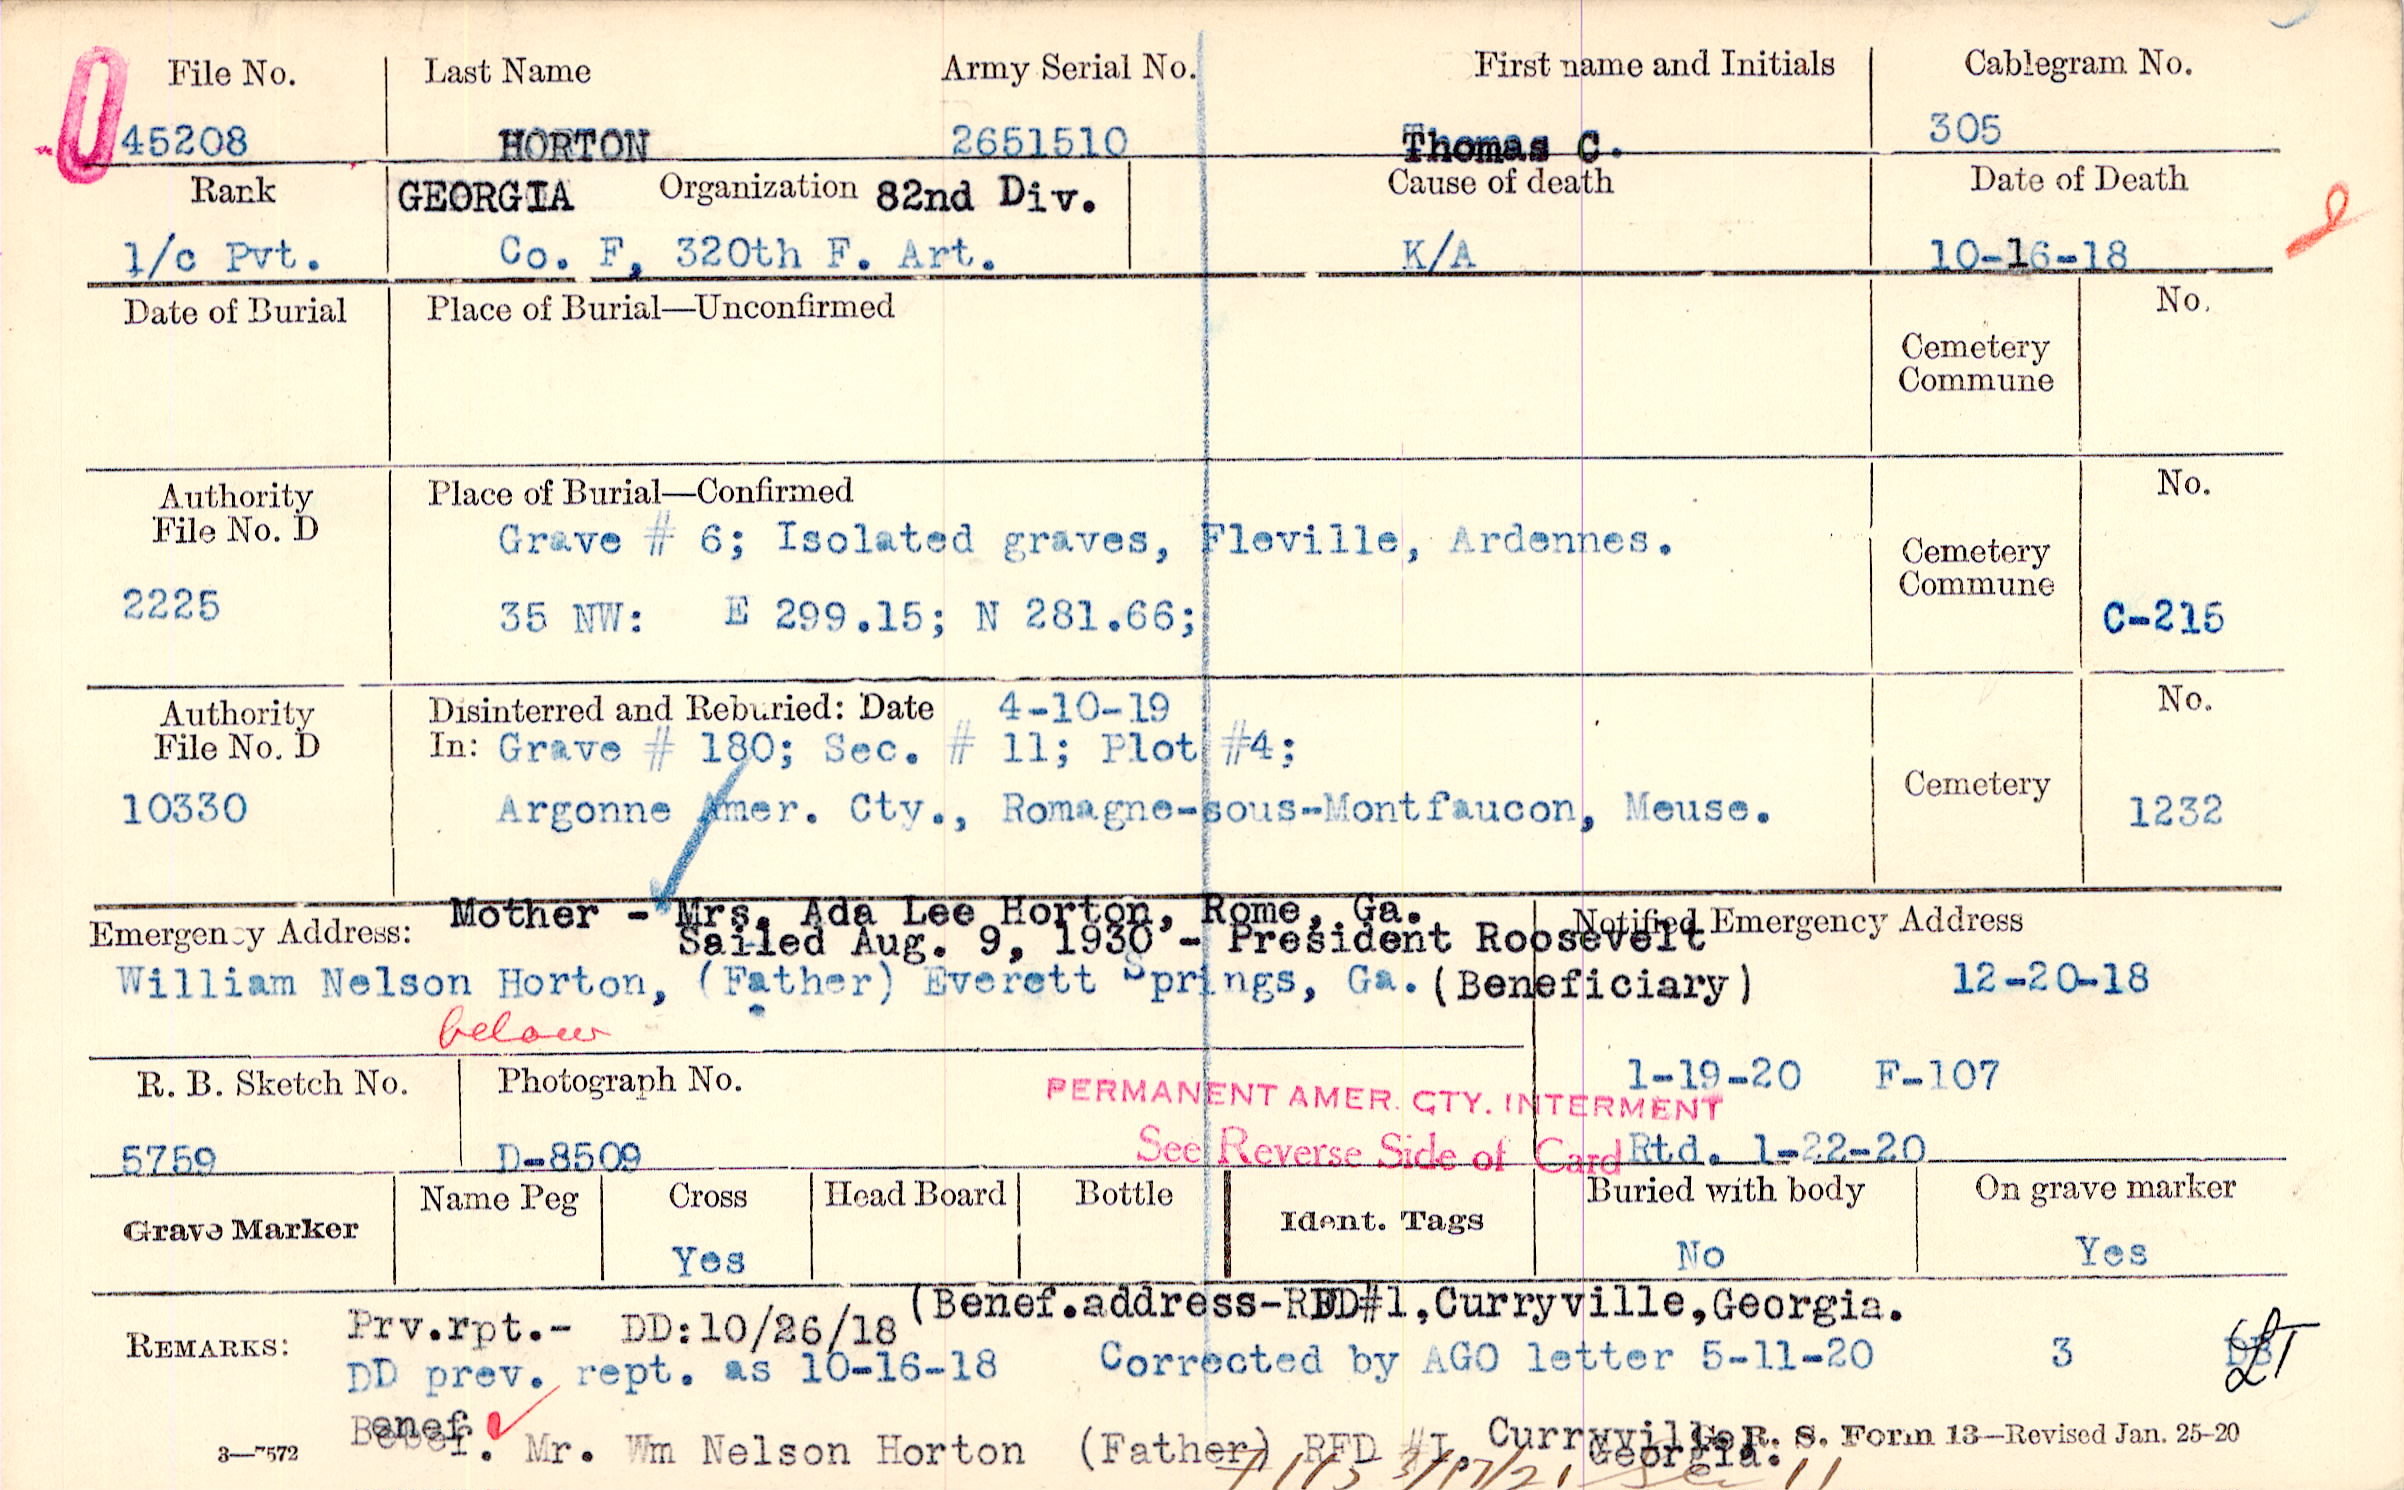 File No. Last Name Army Serial No. First name and Initials Cablegram No.
45208 HORTON 2651510 Thomas C. 305
Rank GEORGIA Organization 82nd Div. Cause of death Date of Death
1/c Pvt. Co. F, 320th F. Art. K/A 10-16-18
Date of Burial Place of Burial—Unconfirmed No.
Cemetery
Commune
Authority Place of Burial—Confirmed No.
File No. D Grave # 6; Isolated graves, Fleville, Ardennes.
Cemetery
Commune
2225 35 NW: E 299.15; N 281.66; C-215
Authority Disinterred and Reburied: Date 4-10-19 No.
File No. D In: Grave # 180; Sec. # 11; Plot #4;
Cemetery
10330 Argonne Amer. Cty., Romagne-sous-Montfaucon, Meuse. 1232
Mother - Mrs. Ada Lee Horton, Rome, Ga.
Emergency Address: Sailed Aug. 9, 1930 - President Roosevelt Notified Emergency Address
William Nelson Horton, (Father) Everett Springs, Ga. (Beneficiary) 12-20-18
below
R. B. Sketch No. Photograph No. 1-19-20 F-107
PERMANENT AMER. CTY. INTERMENT
5759 D-8509 See Reverse Side of Card Rtd. 1-22-20
Grave Marker Name Peg Cross Head Board Bottle Ident. Tags Buried with body On grave marker
Yes No Yes
(Benef.address-RFD#1,Curryville,Georgia.
REMARKS: Prv.rpt.- DD:10/26/18
DD prev. rept. as 10-16-18 Corrected by AGO letter 5-11-20 3
Benef. Mr. Wm Nelson Horton (Father) RFD #1, Curryville, Georgia.
3—7572 G. R. S. Form 13—Revised Jan. 25-20